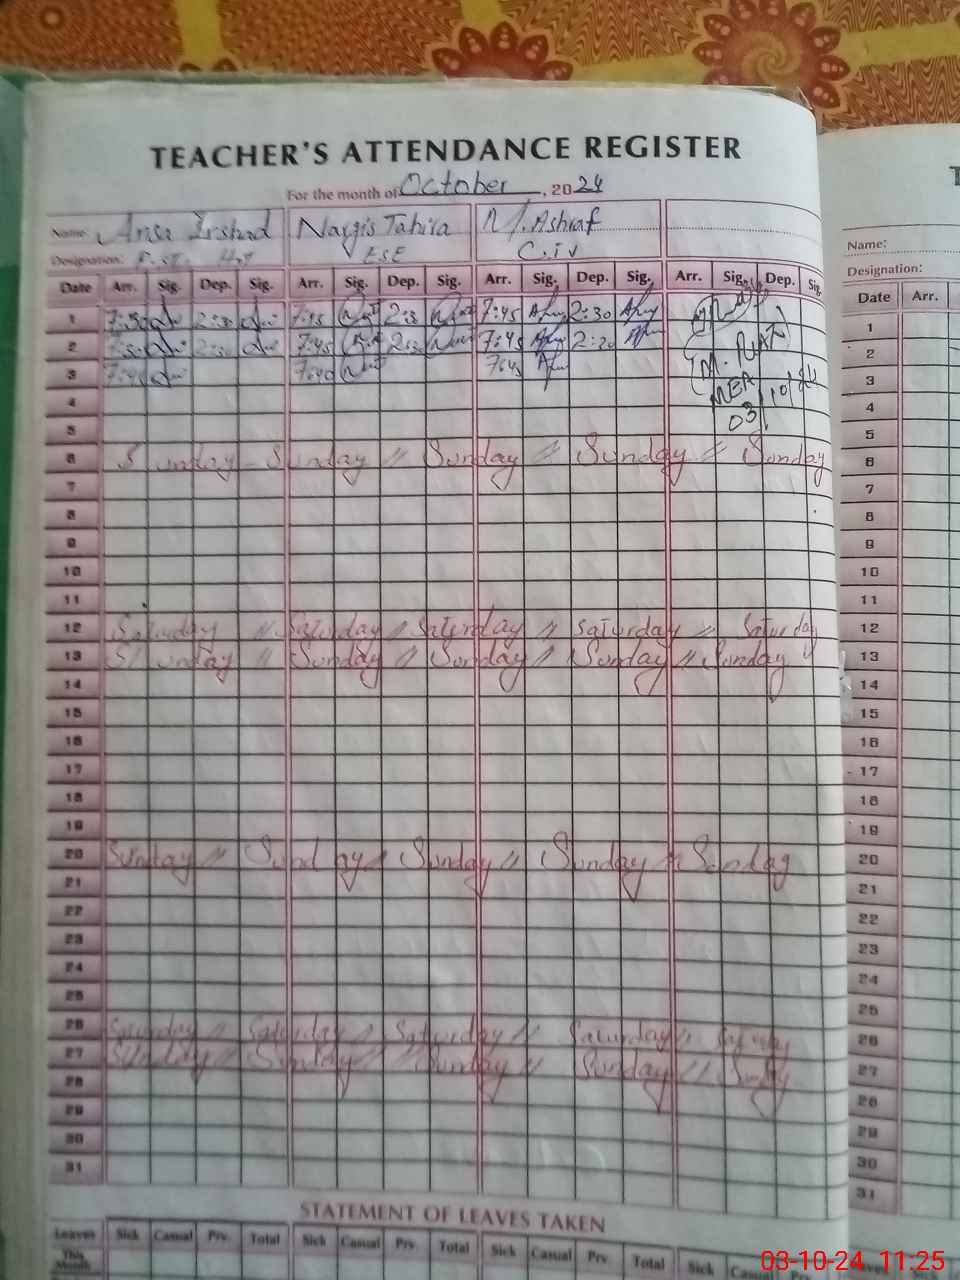 TEACHER'S ATTENDANCE REGISTER
For the month of October, 2024
Name: Ansa Irshad Nargis Tahira M. Ashraf
Designation: ESE C.iv
Date Arr. Sig. Dep. Sig. Arr. Sig. Dep. Sig. Arr. Sig. Dep. Sig. Arr. Sig. Dep. Sig.
1 7:30 2:30 7:45 2:3 7:45 2:30
2 7:30 2:30 7:45 2:3 7:45 2:20
3 7:40 7:40 7:45
M.
MEA
03/10/24
4
5
6 Sunday - Sunday // Sunday // Sunday // Sunday
7
8
9
10
11
12 Saturday // Saturday // Saturday // Saturday // Saturday
13 Sunday // Sunday // Sunday // Sunday // Sunday
14
15
16
17
18
19
20 Sunday // Sunday // Sunday // Sunday // Sunday
21
22
23
24
25
26 Saturday // Saturday // Saturday // Saturday // Saturday
27 Sunday // Sunday // Sunday // Sunday // Sunday
28
29
30
31
STATEMENT OF LEAVES TAKEN
Leaves Sick Casual Prv. Total Sick Casual Prv. Total Sick Casual Prv. Total Sick Casual Prv.
This Month
T
Name:
Designation:
Date Arr.
1
2
3
4
5
6
7
8
9
10
11
12
13
14
15
16
17
18
19
20
21
22
23
24
25
26
27
28
29
30
31
03-10-24 11:25